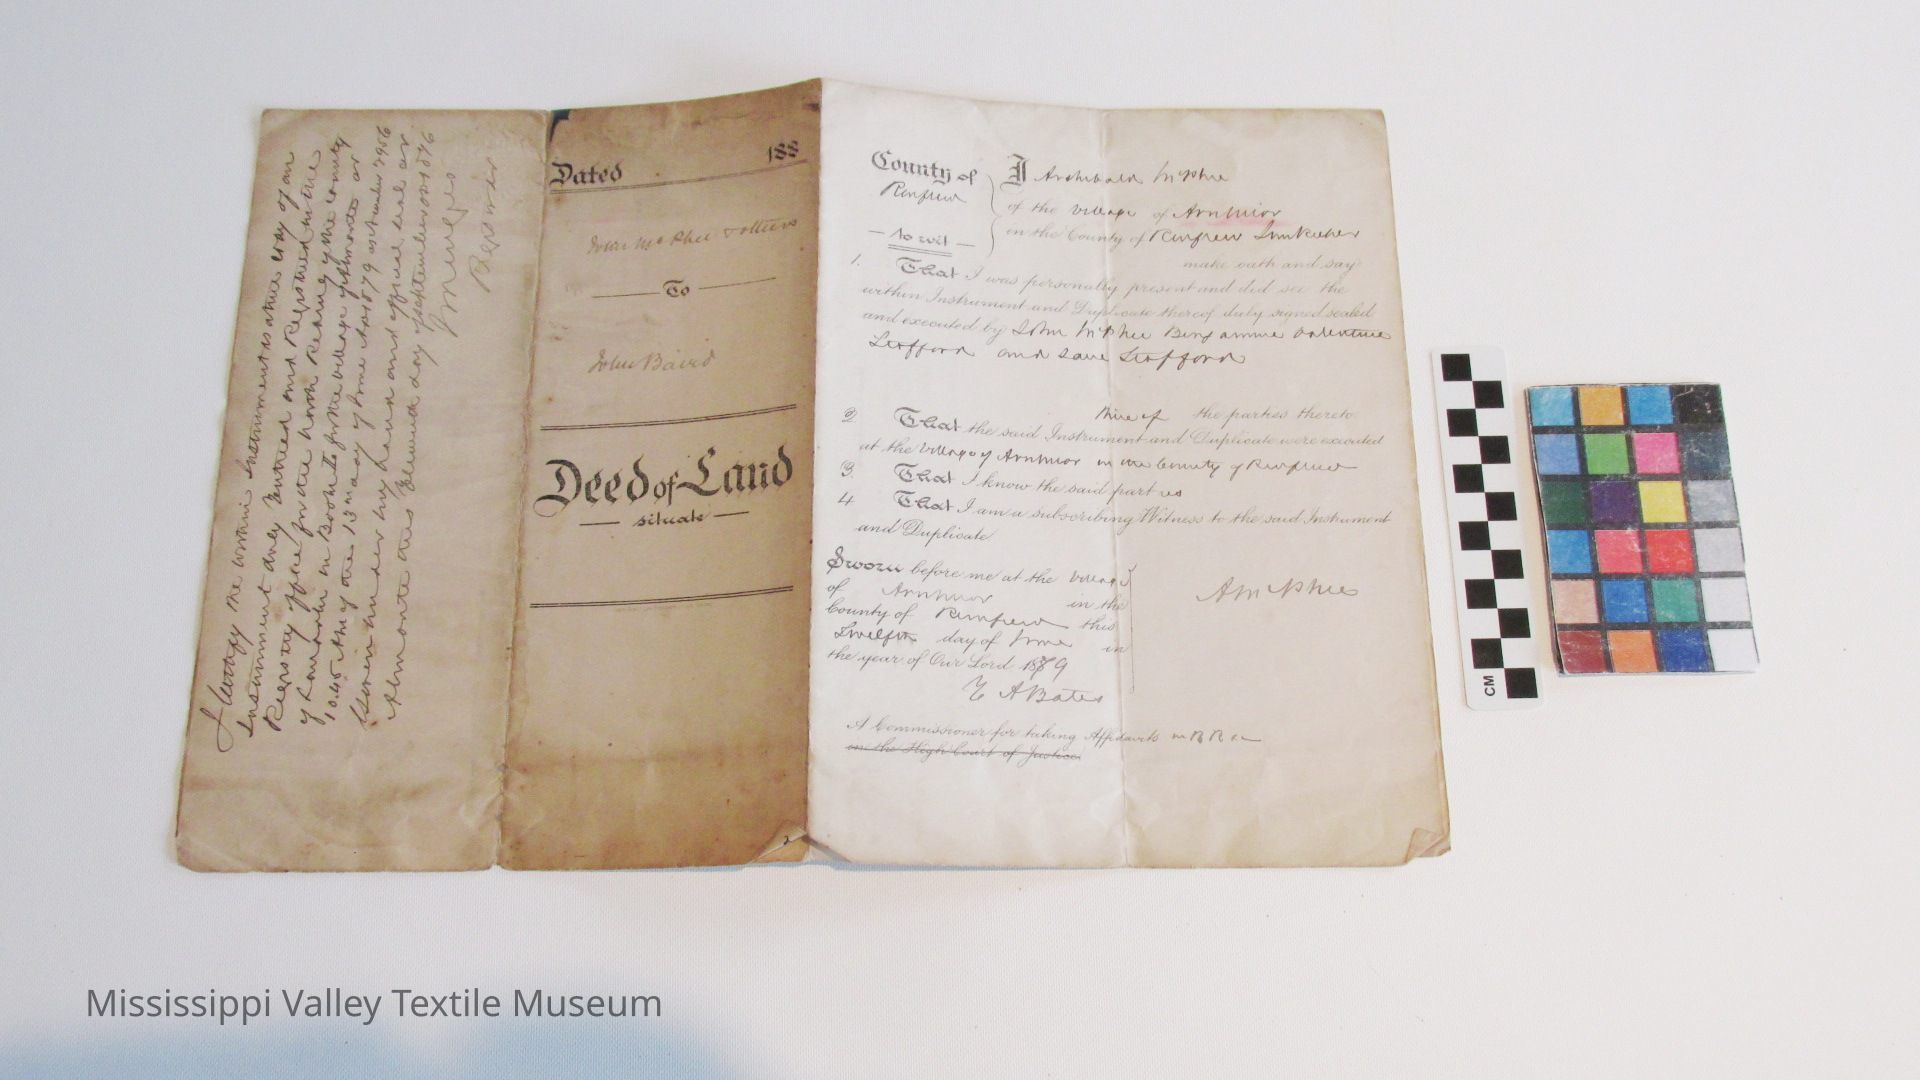 I certify the within Instrument is a true copy of an
Instrument duly Entered and Registered in the
Registry office for the north Riding of the County
of Lanark in Book for the village of Almonte at
10.45 A.M. of the 13th day of June A.D. 1879 as number 2986
Given under my hand and official seal at
Almonte this Eleventh day of September
Registrar
Dated 188
John McPhee & others
To
John Baird
Deed of Land
situate
County of
Renfrew
to wit
I Archibald McPhee
of the village of Arnprior
in the County of Renfrew Innkeeper
make oath and say
1. That I was personally present and did see the
within Instrument and Duplicate thereof duly signed sealed
and executed by John McPhee Benjamine Valentine
and Jane
2 That the said Instrument and Duplicate were executed
three of the parties thereto
at the village of Arnprior in the County of Renfrew
3. That I know the said parties
4 That I am a subscribing Witness to the said Instrument
and Duplicate
Sworn before me at the Village
of Arnprior in the
County of Renfrew this
Twelfth day of June in
the year of Our Lord 1879
A McPhee
E A Bates
A Commissioner for taking Affidavits in B R &c
in the High Court of Justice
CM
Mississippi Valley Textile Museum